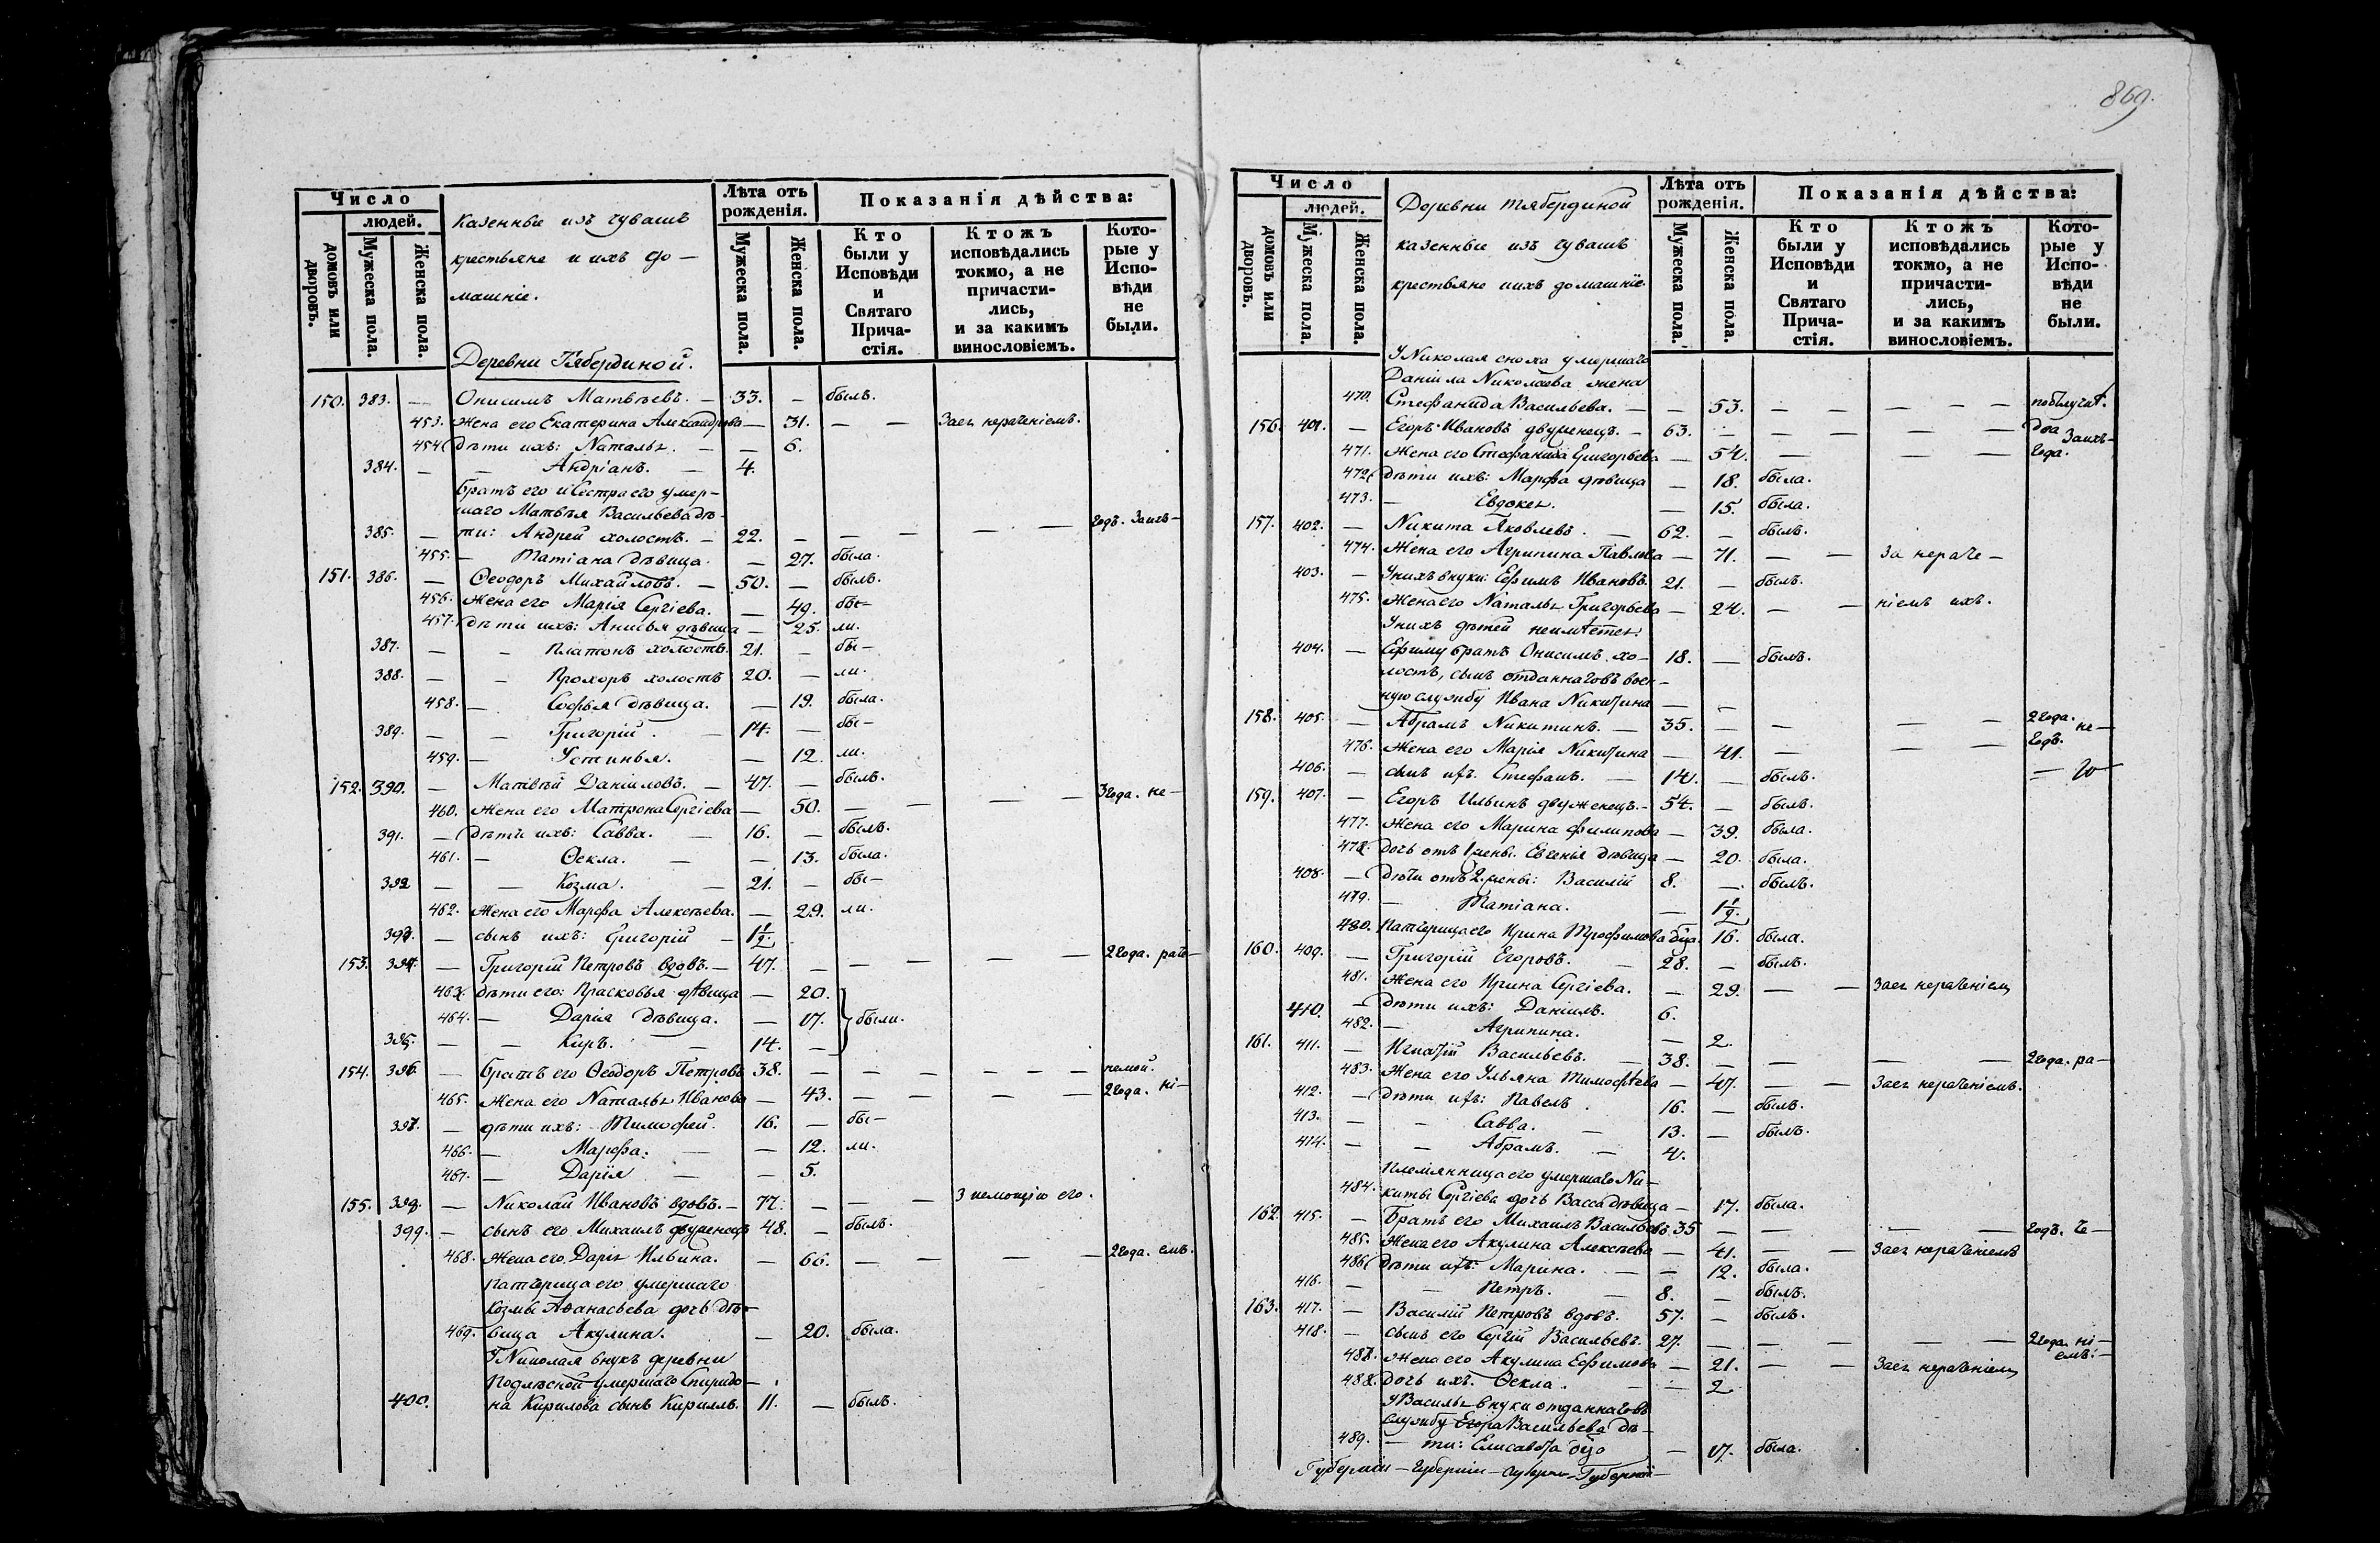 869.
Число
людей.
домовъ или дворовъ.
Мужеска пола.
Женска пола.
Казенные изъ чувашъ
крестьяне и ихъ до—
машніе.
Деревни Тябердиной.
Лѣта отъ рожденія.
Мужеска пола.
Женска пола.
Показанія дѣйства:
Кто были у Исповѣди и Святаго Прича-стія.
Ктожъ исповѣдались токмо, а не причасти-лись, и за какимъ винословіемъ.
Кото-рые у Испо-вѣди не были.
150. 383. — Онисимъ Матвѣевъ. — 33. — былъ.
453. Жена его Екатерина Александрова — 31. — — Заея нераченіемъ.
454. дѣти ихъ: Наталья. — — 6.
384. — — Андріанъ. — 4.
братъ его и Сестра его умер—
шаго Матвѣя Васильева дѣ—
385. — ти: Андрей холостъ. — 22. — — — — Годъ. Заихъ—
455. — Татіана дѣвица. — 27. была.
151. 386. — Ѳеодоръ Михайловъ. — 50. — былъ.
456. Жена его Марія Сергіева. — 49. бы—
457. дѣти ихъ: Анисья дѣвица — 25. ли.
387. — — Платонъ холостъ. 21. — бы—
388. — — Прохоръ холостъ 20. — ли.
458. — Софья дѣвица. — 19. была.
389. — — Григорій. — 14. — бы—
459. — Устинья. — 12. ли.
152. 390. — Матвѣй Даніиловъ. — 47. — былъ.
460. Жена его Матрона Сергіева — 50. — — — — 3 года. не—
391. — дѣти ихъ: Савва. — 16. — былъ.
461. — Ѳекла. — — 13. была.
392 — — Козма. — 21. — бы—
462. Жена его Марфа Алексѣева. — 29. ли.
393. — сынъ ихъ: Григорій — 1 1/2.
153. 394. — Григорій Петровъ вдовъ. — 47. — — — — — 2 года. раче—
463. дѣти его: Прасковья дѣвица — 20.
464. — Дарія дѣвица. — 17. были.
395. — — Киръ. — 14. —
154. 396. — братъ его Ѳеодоръ Петровъ 38. — — — — — — немой.
465. Жена его Наталья Иванова — 43. — — — — 2 года. ні—
397. — дѣти ихъ: Тимофей. 16. — бы—
466. — Марфа. — — 12. ли.
467. — Дарія — — 5.
155. 398. — Николай Ивановъ вдовъ. — 77. — — — З немощію его.
399. — сынъ его Михаилъ двуженецъ 48. — былъ.
468. Жена его Дарія Ильина. — 66. — — — — 2 года. емъ.
Патчерица его умершаго
Козмы Аѳанасьева дочь дѣ—
469. вица Акулина. — 20. была.
У Николая внукъ деревни
Подлѣсной умершаго Спиридо—
400. на Кирилова сынъ Кириллъ. 11. — былъ.
Число
людей.
домовъ или дворовъ.
Мужеска пола.
Женска пола.
Деревни Тябердиной
казенные изъ чувашъ
крестьяне и ихъ домашніе.
Лѣта отъ рожденія.
Мужеска пола.
Женска пола.
Показанія дѣйства:
Кто были у Исповѣди и Святаго Прича-стія.
Ктожъ исповѣдались токмо, а не причасти-лись, и за какимъ винословіемъ.
Кото-рые у Испо-вѣди не были.
У Николая сноха умершаго
Даніила Николаева жена
470. Стефанида Васильева. — — 53. — — — — —
156. 401. — Егоръ Ивановъ двуженецъ. — 63. — — — — — Два Заихъ—
471. Жена его Стефанида Григорьева — 54. — — — Года.
472. дѣти ихъ: Марфа дѣвица — 18. была.
473. — Евдокея. — 15. была.
157. 402. — Никита Яковлевъ. — 62. — былъ.
474. Жена его Агрипина Павлова — 71. — — За нераче—
403. — У нихъ внуки: Ефимъ Ивановъ. 21. — былъ.
475. Жена его Наталья Григорьева — 24. — — ніемъ ихъ.
У нихъ дѣтей неимѣется.
404. — Ефиму братъ Онисимъ хо— 18. — былъ.
лостъ, сынъ отданнаго въ воен—
ную службу Ивана Никитина — —
158. 405. — Абрамъ Никитинъ. — 35. — — — — 2 года. не—
476. Жена его Марія Никитина — 41. — — — Годъ.
406. — сынъ ихъ. Стефанъ. — 14. — былъ.
159. 407. — Егоръ Ильинъ двуженецъ. — 54. — былъ.
477. Жена его Марина Филипова — 39. была.
478. дочь отъ 1 жены. Евгенія дѣвица — 20. была.
408. — дѣти отъ 2. жены: Василій 8. — былъ.
479. — Татіана. — 1 1/2.
480. Патчерица его Ирина Трофимова дца. 16. была.
160. 409. — Григорій Егоровъ. — 28. — былъ.
481. Жена его Ирина Сергіева. — 29. — — Заея нераченіем
410. — дѣти ихъ: Даніилъ. 6.
482. — Агрипина. — 2.
161. 411. — Игнатій Васильевъ. — 38. — — — — 2 года. ра—
483. Жена его Ульяна Тимофѣева — 47. — — Заея нераченіемъ.
412. — дѣти ихъ: Павелъ. 16. — былъ.
413. — — Савва. — 13. — былъ.
414. — — Абрамъ. — 4.
Племянница его умершаго Ни—
484. киты Сергіева дочь Васса дѣвица — 17. была.
162. 415. — Братъ его Михаилъ Васильевъ 35 — — — — Годъ. че—
485. Жена его Акулина Алексѣева — 41. — — Заея нераченіемъ
486. дѣти ихъ: Марина. — — 12. была.
416. — — Петръ. — 8. — былъ.
163. 417. — Василій Петровъ вдовъ. 57. — былъ.
418. — сынъ его Сергій Васильевъ. 27. — — — — 2 года. ні— емъ.—
487. Жена его Акулина Ефимова — 21. — — Заея нераченіем
488. дочь ихъ. Ѳекла. — — 2
У Василья внуки отданнаго въ
службу Егора Васильева дѣ—
489. — ти: Елисавета дца — 17. была.
Губерніи — Губерніи — Губерни — Губерній —